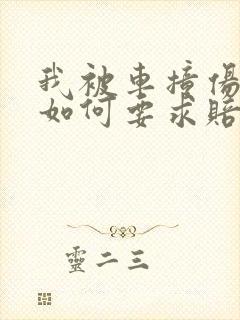 我被車撞傷
如何要求賠
靈二三